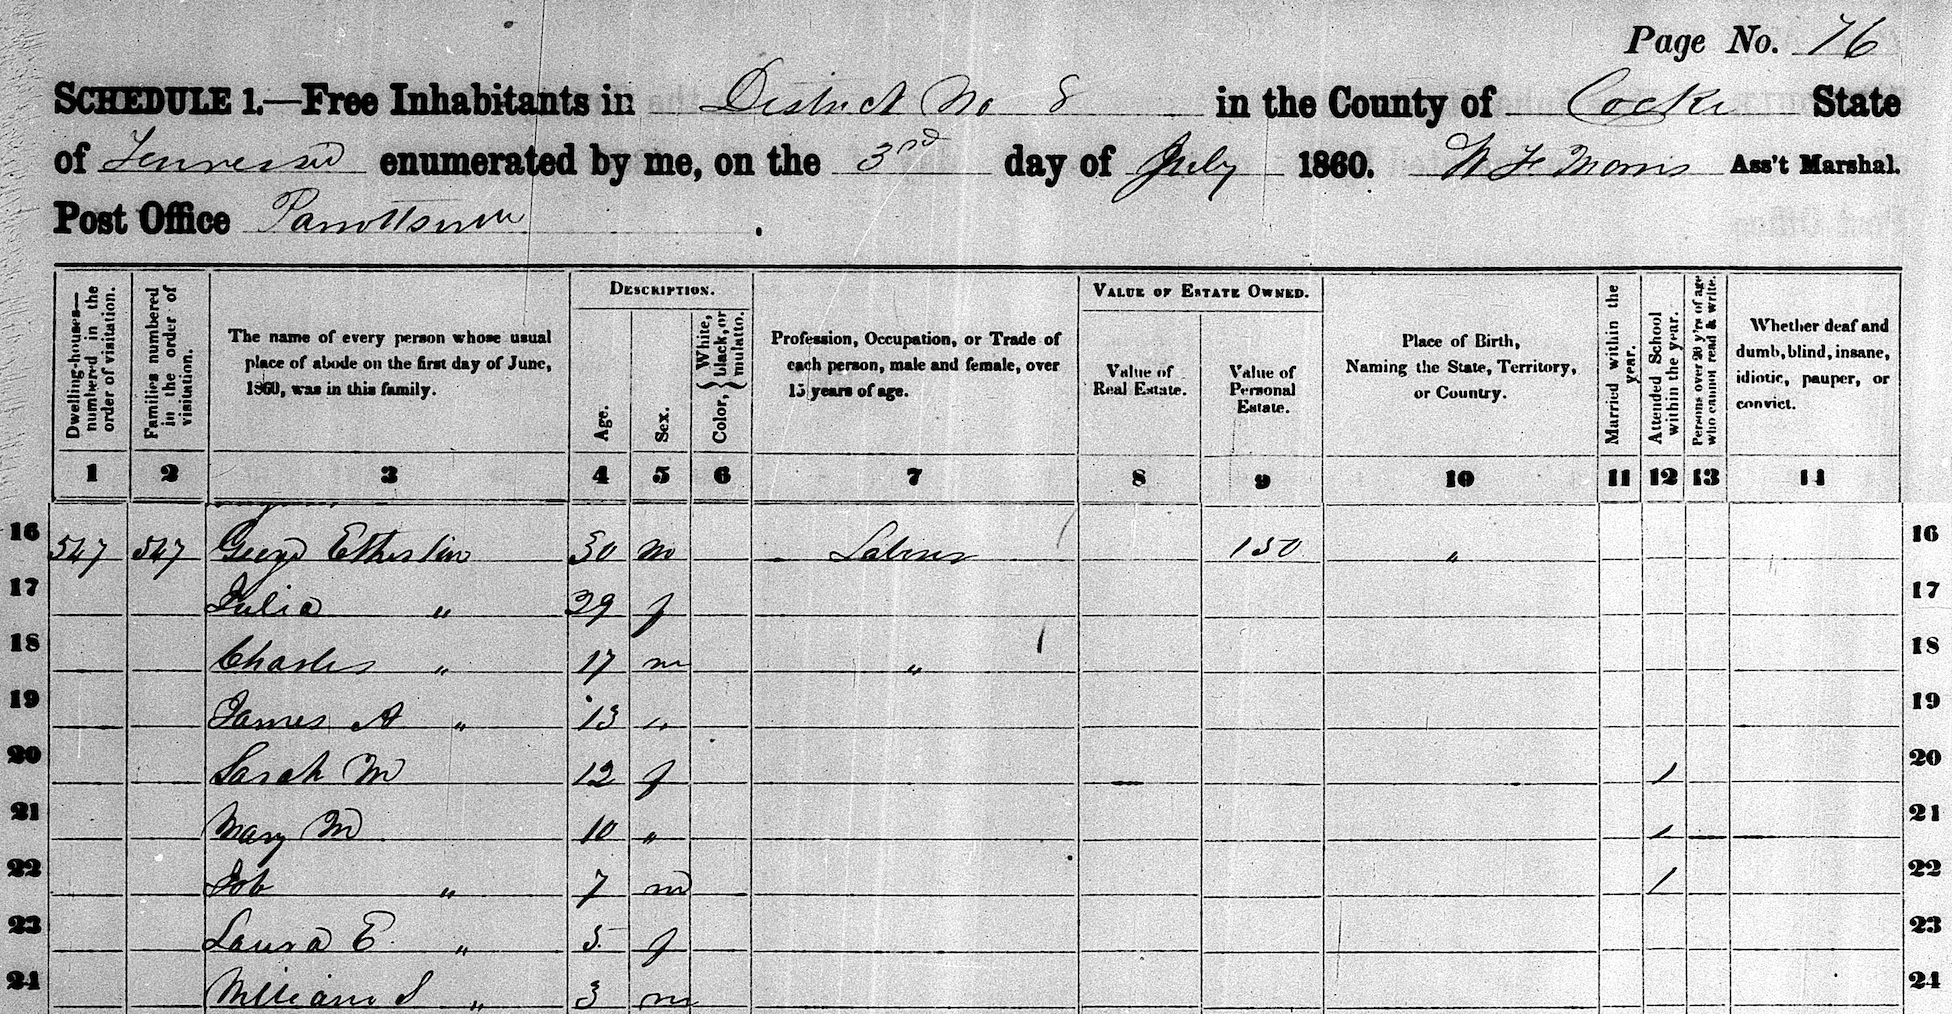 Page No. 76
SCHEDULE 1.—Free Inhabitants in District No 8 in the County of Cocke State
of Tennessee enumerated by me, on the 3rd day of July 1860. W F Morris Ass't Marshal.
Post Office Parrottsville .
Dwelling-houses—numbered in the order of visitation.
Families numbered in the order of visitation.
The name of every person whose usual place of abode on the first day of June, 1860, was in this family.
DESCRIPTION.
Age.
Sex.
Color, { White, black, or mulatto.
Profession, Occupation, or Trade of each person, male and female, over 15 years of age.
VALUE OF ESTATE OWNED.
Value of Real Estate.
Value of Personal Estate.
Place of Birth, Naming the State, Territory, or Country.
Married within the year.
Attended School within the year.
Persons over 20 y'rs of age who cannot read & write.
Whether deaf and dumb, blind, insane, idiotic, pauper, or convict.
1 2 3 4 5 6 7 8 9 10 11 12 13 14
16 547 547 George Etherton 50 m Laborer 150 " 16
17 Julia " 39 f 17
18 Charles " 17 m " 18
19 James A " 13 " 19
20 Sarah M 12 f / 20
21 Mary M 10 " / 21
22 Job " 7 m / 22
23 Laura E. " 5 f 23
24 William S " 3 m 24